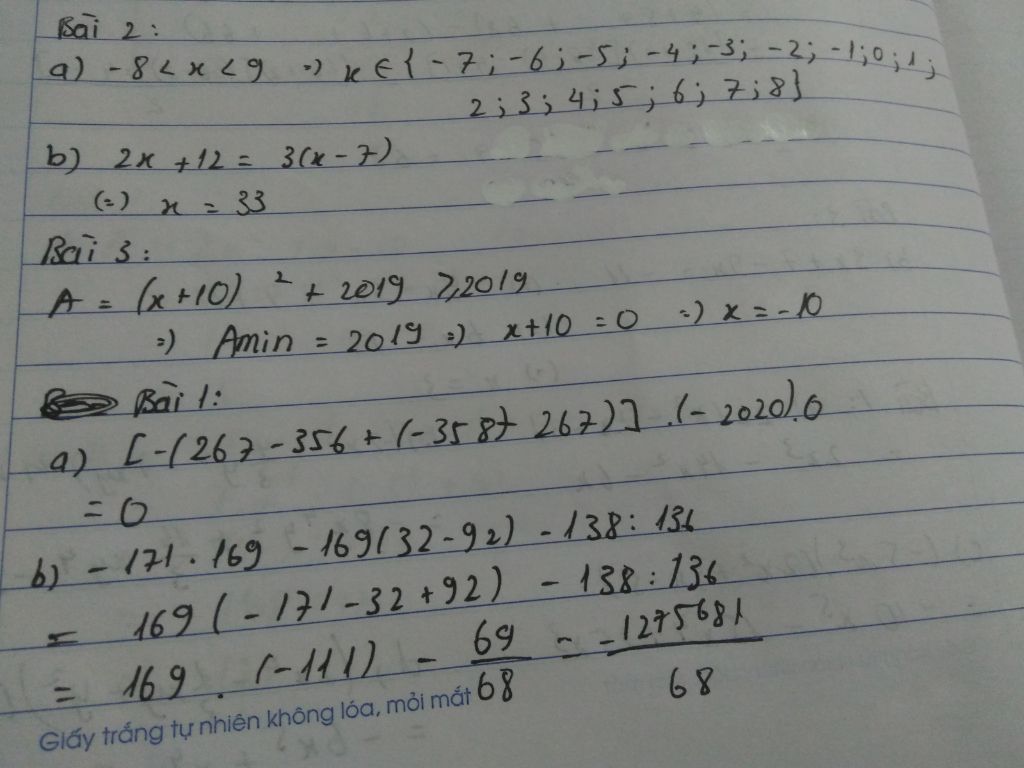 Bài 2:
a) -8 < x < 9 => x ∈ { -7; -6; -5; -4; -3; -2; -1; 0; 1;
2; 3; 4; 5; 6; 7; 8}
b) 2x + 12 = 3(x - 7)
(=) x = 33
Bài 3:
A = (x+10)² + 2019 ≥ 2019
=) Amin = 2019 =) x+10 = 0 =) x = -10
Bài 1:
a) [-(267 - 356 + (-358) - 267)] . (-2020).0
= 0
b) -171 . 169 - 169(32-92) - 138 : 136
= 169(-171 - 32 + 92) - 138 : 136
= 169 . (-111) - 69/68 = -1275681/68
Giấy trắng tự nhiên không lóa, mỏi mắt